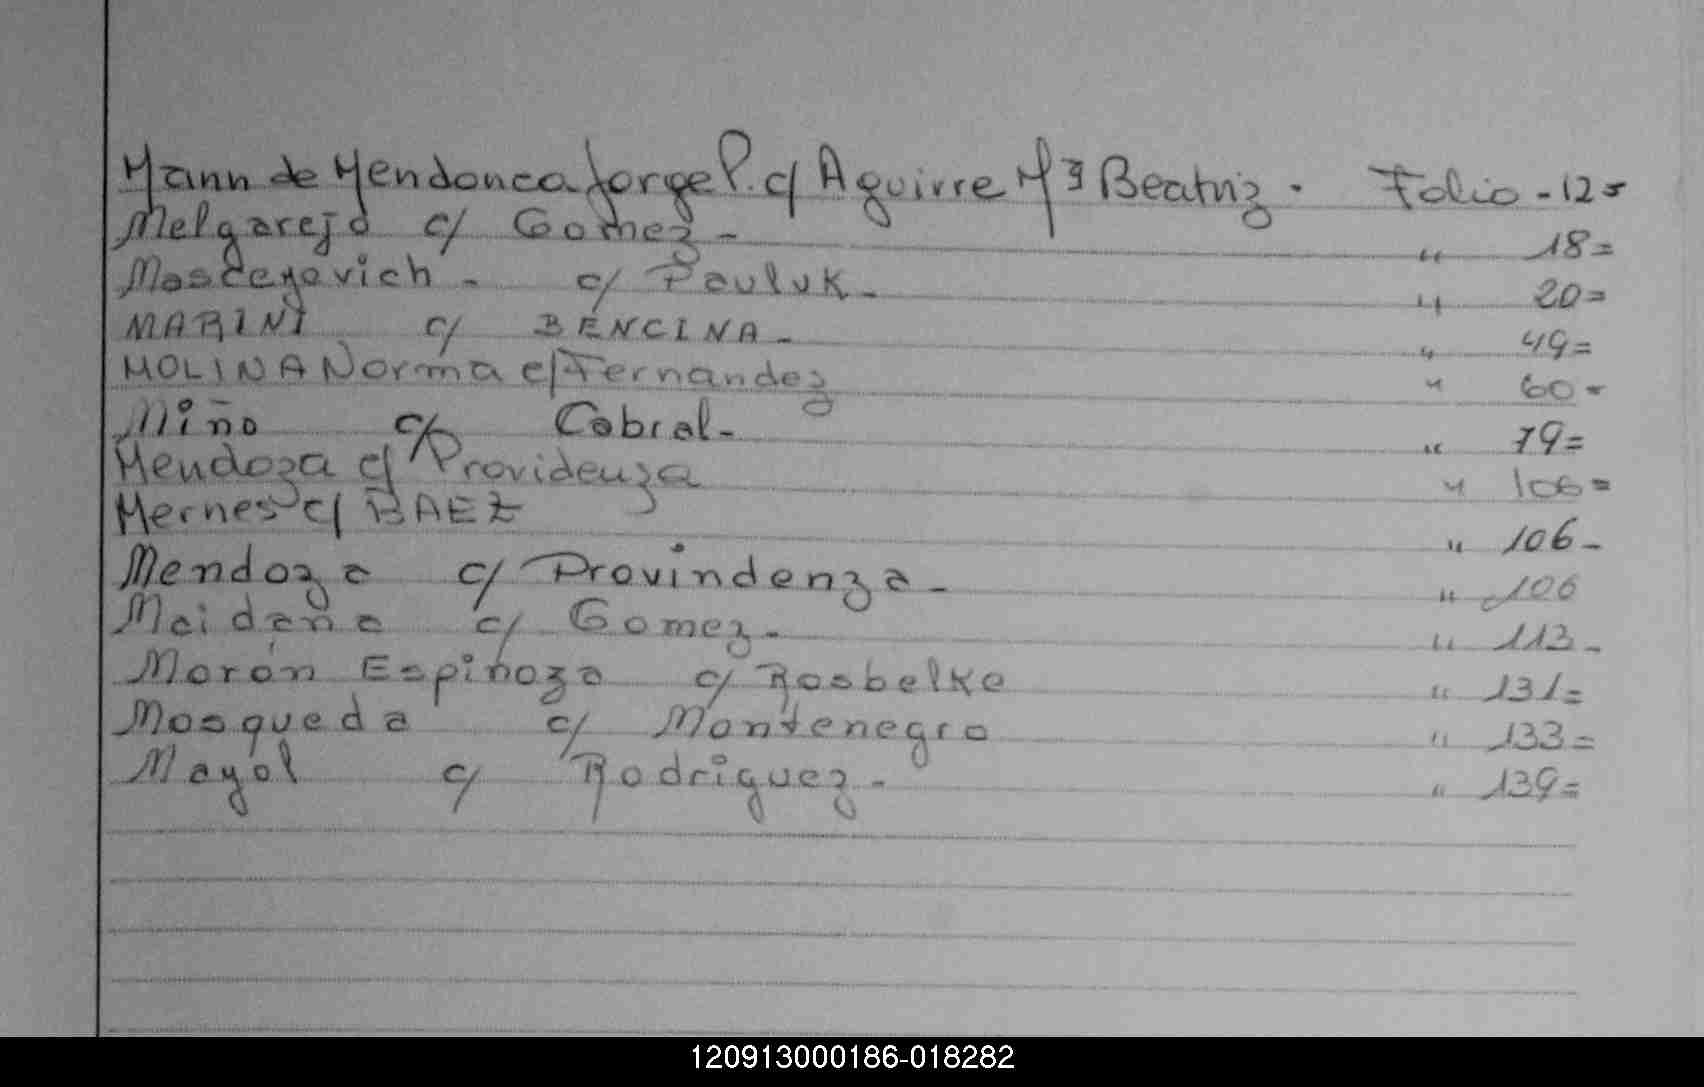 Mann de Mendonca Jorge P. c/ Aguirre Mª Beatriz. Folio - 12=
Melgarejo c/ Gomez - " 18=
Mosceyovich - c/ Pauluk - " 20=
MARINI c/ BENCINA - " 49=
MOLINA Norma c/ Fernandez " 60=
Miño c/ Cabral - " 79=
Mendoza c/ Providenza " 106=
Mernes c/ BAEZ " 106-
Mendoza c/ Provindenza - " 106
Maidana c/ Gomez - " 113-
Morón Espinoza c/ Rosbelke " 131=
Mosqueda c/ Montenegro " 133=
Mayol c/ Rodriguez - " 139=
120913000186-018282